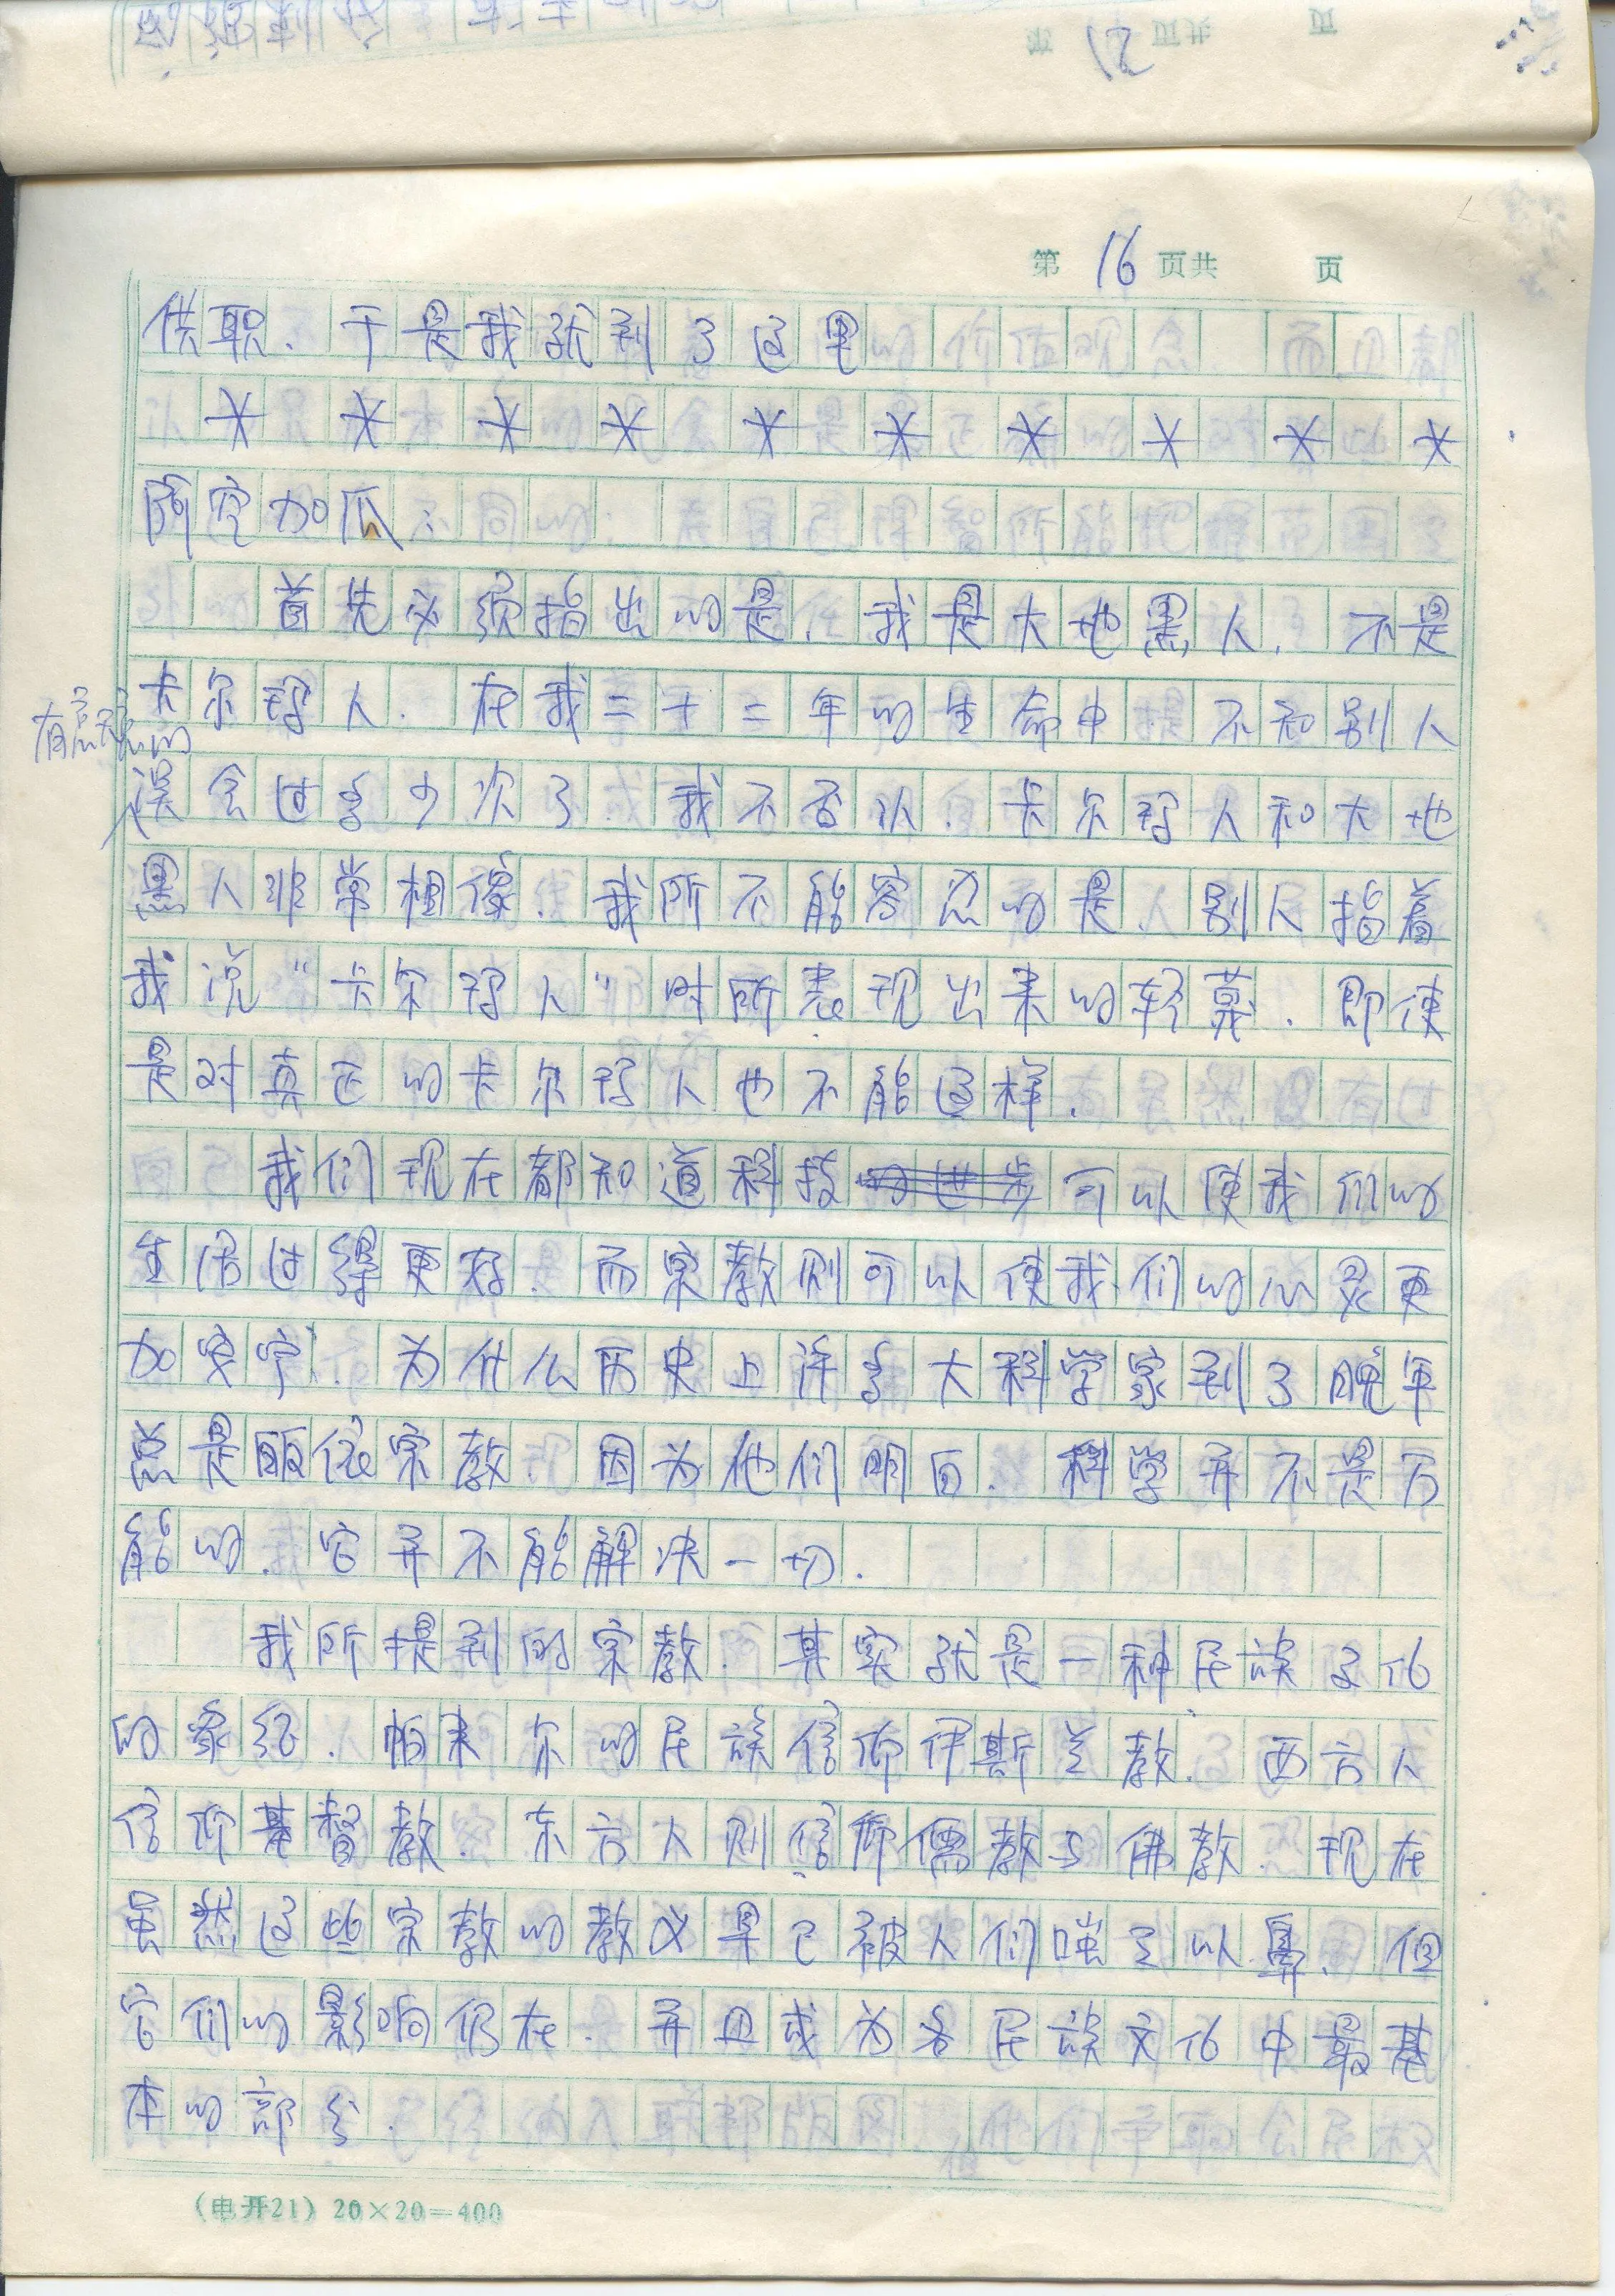 第 16 页共 页
供职. 于是我就到了这里
* * * * * * * * * *
阿空加瓜:
首先必须指出的是, 我是大地黑人, 不是
卡尔穆人. 在我二十二年的生命中, 不知别人
有意无意的
误会过多少次了. 我不否认, 卡尔穆人和大地
黑人非常相像. 我所不能容忍的是, 别人指着
我说“卡尔穆人”时所表现出来的轻蔑. 即使
是对真正的卡尔穆人也不能这样.
我们现在都知道科技的进步可以使我们的
生活过得更好. 而宗教则可以使我们的心灵更
加安宁. 为什么历史上许多大科学家到了晚年
总是皈依宗教. 因为他们明白. 科学并不是万
能的. 它并不能解决一切.
我所提到的宗教. 其实就是一种民族文化
的象征. 帕米尔的民族信仰伊斯兰教. 西方人
信仰基督教. 东方人则信仰儒教与佛教. 现在
虽然这些宗教的教义早已被人们嗤之以鼻. 但
它们的影响仍在. 并且成为各民族文化中最基
本的部分.
(电开21) 20×20=400